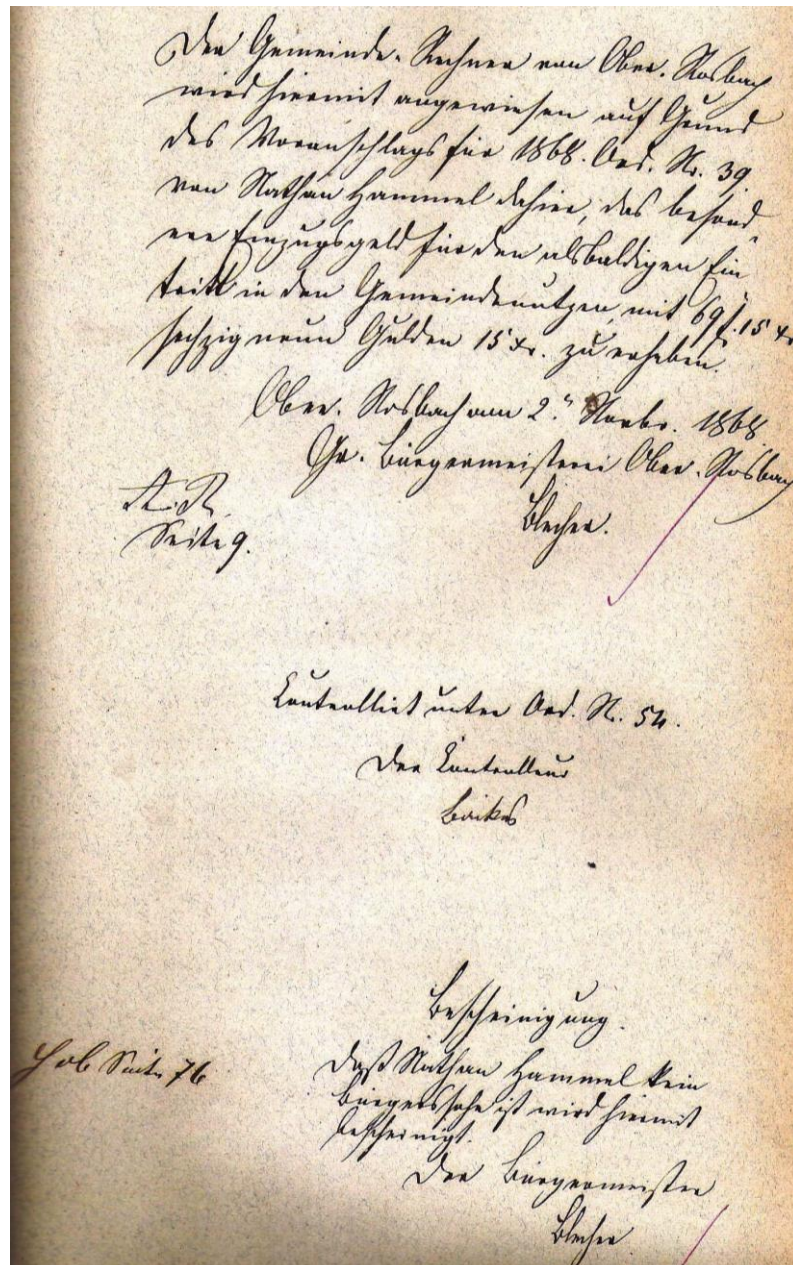 Der Gemeinde-Rechner von Ober-Rosbach
wird hiermit angewiesen auf Grund
des Voranschlags für 1868. Ord. Nr. 39
von Nathan Hammel dahier, das besond
ere Einzugsgeld für den alsbaldigen Ein
tritt in den Gemeindenutzen, mit 69 f. 15 xr
sechzig neun Gulden 15 xr. zu erheben.
Ober-Rosbach am 2. Novbr. 1868
Gr. Bürgermeisterei Ober-Rosbach
Blecher.
A. R.
Seite 9.
Kontrollirt unter Ord. N. 54.
Der Kontrolleur
Bescheinigung.
Seite 76
Daß Nathan Hammel kein
Bürgerssohn ist wird hiermit
bescheinigt.
Der Bürgermeister
Blecher